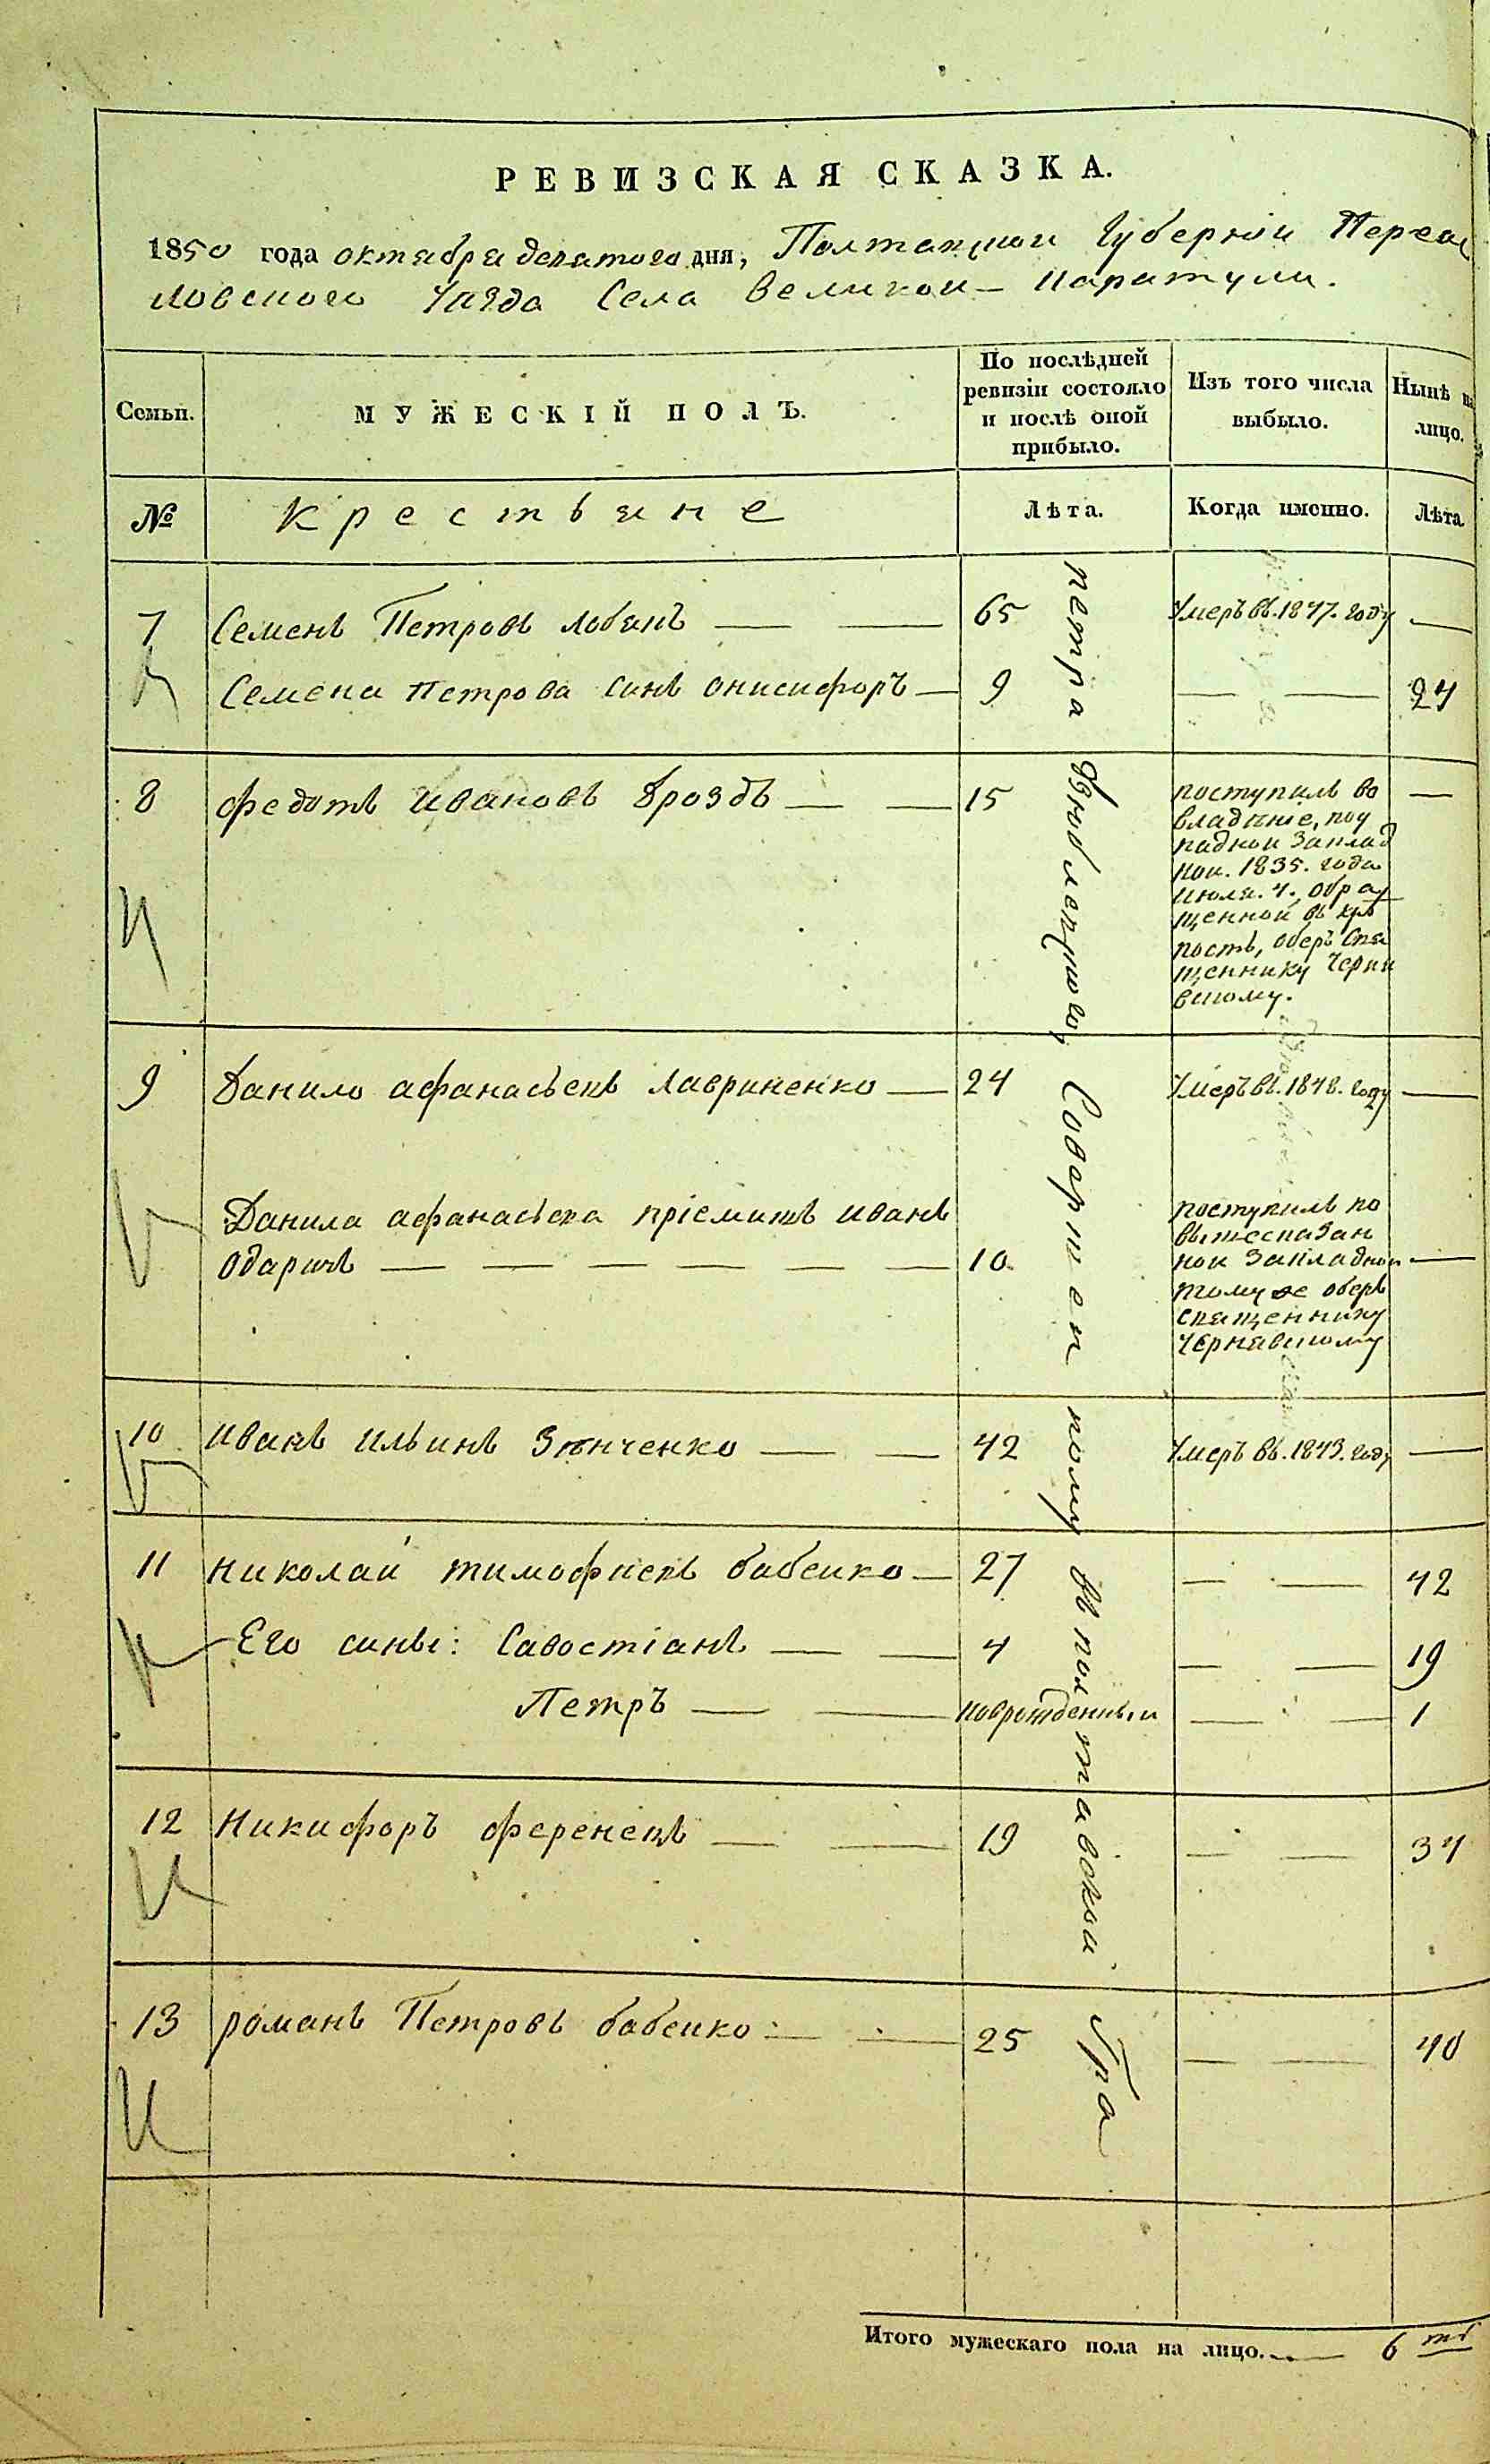 РЕВИЗСКАЯ СКАЗКА.
1850 года октября девятого дня, Полтавской Губернии Переяс
ловского Уѣзда Села Великой-Каратули.
Семьи.
МУЖЕСКІЙ ПОЛЪ.
По послѣдней ревизіи состояло и послѣ оной прибыло.
Изъ того числа выбыло.
Нынѣ на лицо.
№
Крестьяне
Лѣта.
Когда именно.
Лѣта
7 Семенъ Петровъ Лобань 65 Умеръ въ. 1847. году
Семена Петрова синъ Онисифоръ 9 24
8 Федотъ Ивановъ Дроздъ 15
поступилъ во
владѣніе, по
закладной
1835. года
июля. 4. обра
щенной въ крѣ
пость, оберъ Свя
щеннику Черня
вскому.
9 Данило Афанасьевъ Лавриненко 24 Умеръ въ. 1848. году
Данила Афанасьева пріемишъ Иванъ
Одаричъ 10
поступилъ по
вышесказан
ной Закладной
тому же оберъ
священнику
Чернявскому
10 Иванъ Ильинъ Зѣнченко 42 Умеръ въ. 1843. году
11 Николай Тимофиевъ Бабенко 27 42
Его сины: Савостіанъ 4 19
Петръ новрожденный 1
12 Никифоръ Ференецъ 19 34
13 Романъ Петровъ Бабенко 25 40
Петра
Полтавскій
Гра
Итого мужескаго пола на лицо. 6 ть